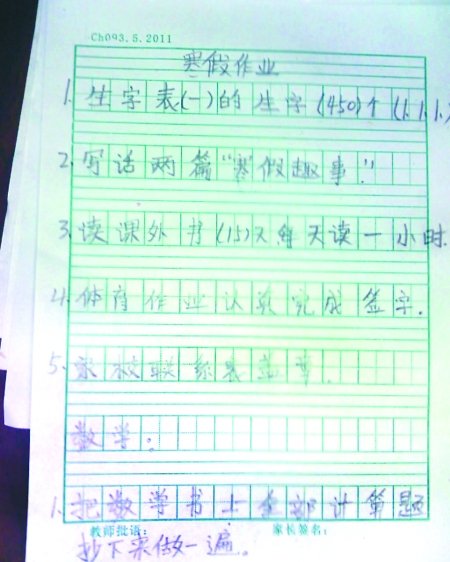 Ch093.5.2011
寒假作业
1. 生字表(一)的生字(450)个(1.1.1.)
2. 写话两篇“寒假趣事.”
3. 读课外书(15)天每天读一小时.
4. 体育作业认真完成签字.
5. 家校联系表盖章.
数学:
1. 把数学书上全部计算题
教师批语: 家长签名:
抄下来做一遍。